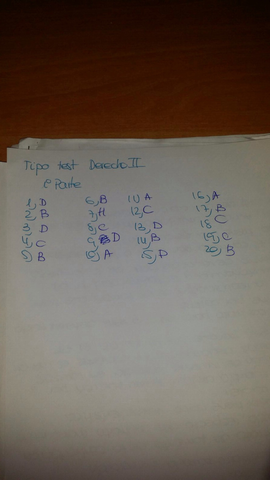 Tipo test Derecho II
1ª Parte
1, D 6, B 11, A 16, A
2, B 7, A 12, C 17, B
3, D 8, C 13, D 18, C
4, C 9, D 14, B 19, C
5, B 10, A 15, D 20, B